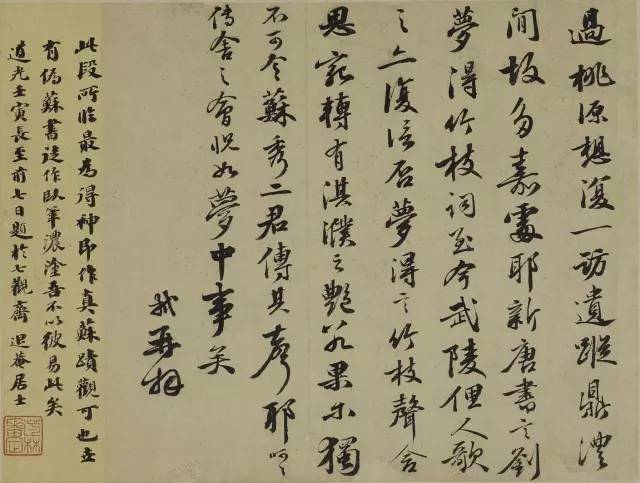 過桃源想復一訪遺蹤鼎澧
間故多嘉處耶新唐書言劉
夢得竹枝詞至今武陵俚人歌
之亦復信否夢得言竹枝聲含
思宛轉有淇濮之艷若果尔獨
不可令蘇秀二君傳其聲耶呵呵
傳舍之會怳如夢中事矣
軾再拜
此段所臨最為得神即作真蘇蹟觀可也世
有偽蘇書迹作臥筆濃塗吾不以彼易此矣
道光壬寅長至前七日題於七觀齋 退菴居士